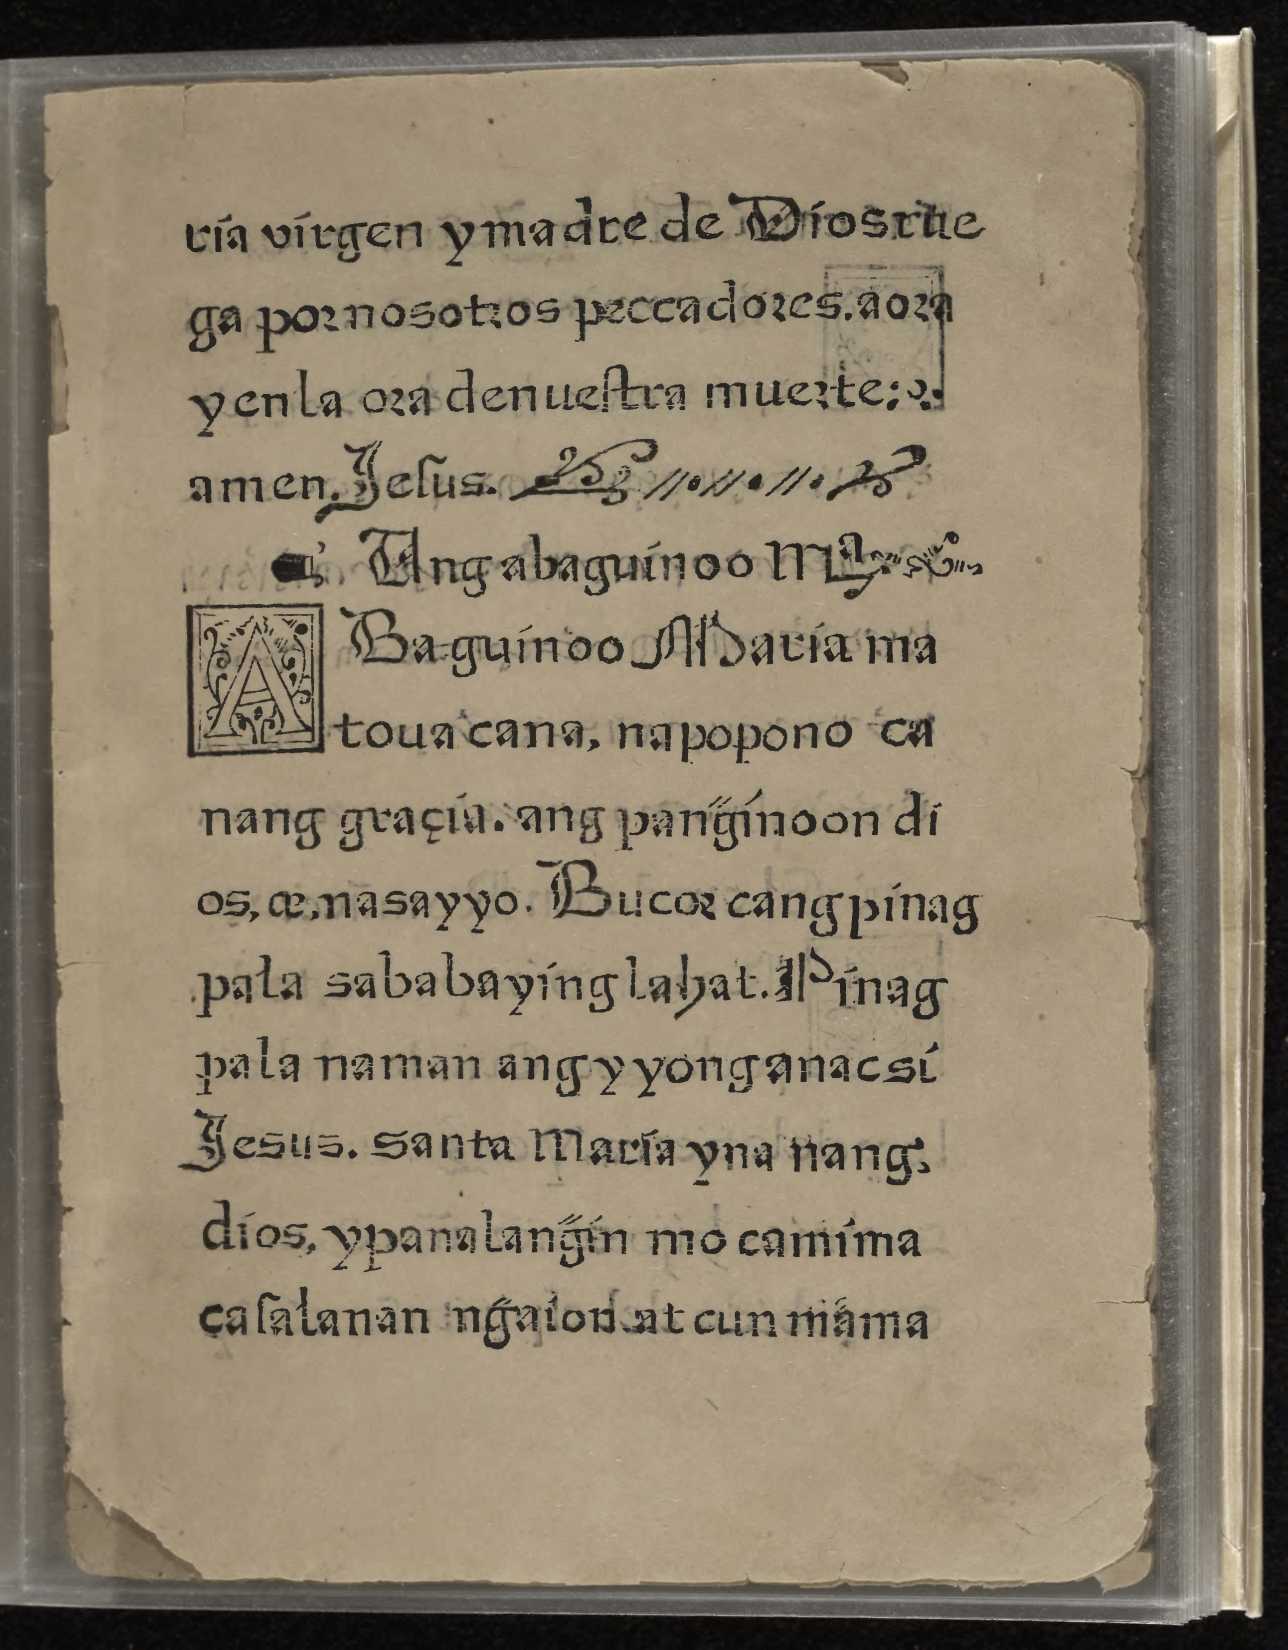 ría vírgen y madre de Díos rue
ga por nosotros peccadores. aora
y en la ora de nueſtra muerte:
amen. Jeſus.
Ang aba guínoo Mᵃ.
ABa guínoo María ma
toua cana, napopono ca
nang graçía. ang pang̃ínoon dí
os, æ, nasa yyo. Bucor cang pínag
pala sa babayíng lahat. Pínag
pala naman ang yyong anac sí
Jesus. Santa María yna nang,
díos, ypanalang̃ín mo camí ma
caſalanan ng̃aíon. at cun mama